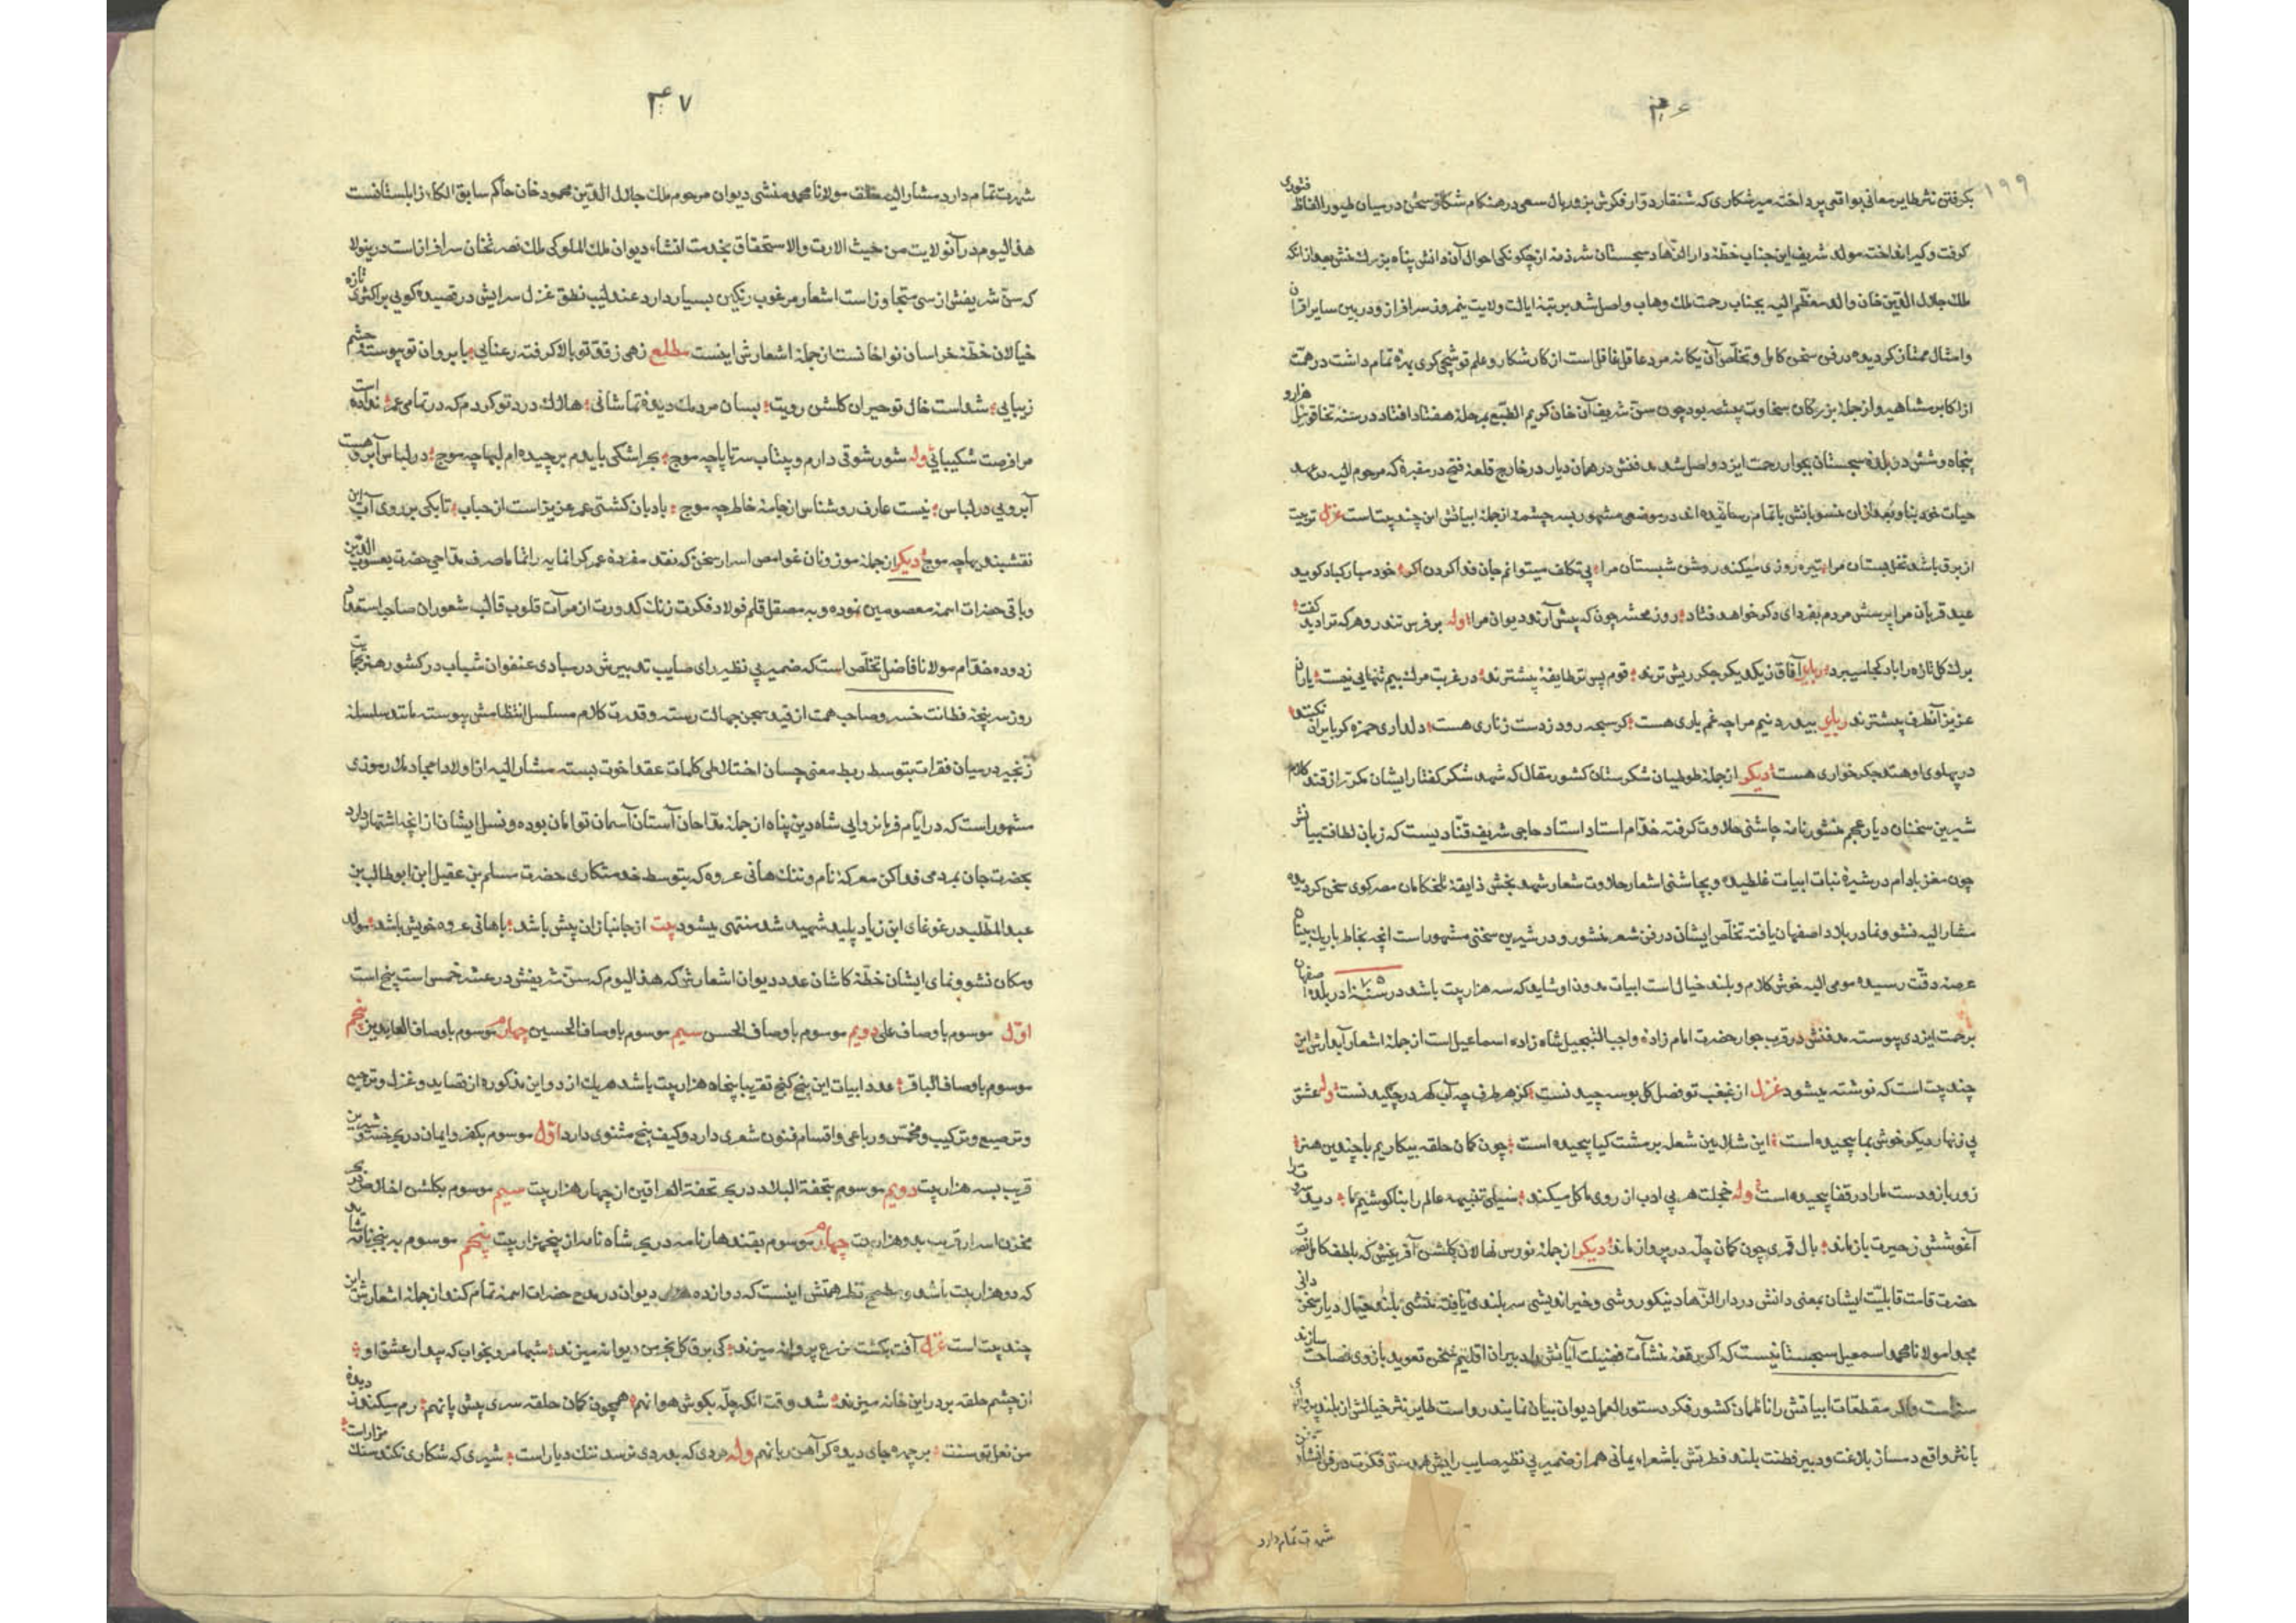 ۱۹۹
بکرفتن نثر طایر معانی بواقعی پرداخته میر شکاری که شنقار دوّار فکرش بزور بال سعی در هنکام شکار سخن در میان طیور الفاظ
کرفت و کیر انداخته مولد شریف این جناب خطّهٔ دار سجستان شر ذمه از چکونکی احوال آن دانش پناه بزرک منش بعد از انکه
ملک جلال الدّین خان والد معظّم الیه بجناب رحمت ملک وهاب واصل شد برتبهٔ ایالت ولایت نیمروز سرافراز و در بین سایر اقران
و امثال ممتاز کردیده در فن سخن کامل و تخلّص آن یکانه مرد عاقل غافل است از کار شکار و علم قوشچی کری بهرهٔ تمام داشت در همّت
از اکابر مشاهیر و از جملهٔ بزرکان سخاوت پیشه بود چون سنّ شریف آن خان کریم الطّبع بمرحلهٔ هفتاد افتاد در سنه هزار و
پنجاه و شش در بلدهٔ سجستان بجوار رحمت ایزد واصل شد مدفنش در همان دیار در خارج قلعهٔ فتح در مقبرهٔ که مرحوم الیه در عهد
حیات خود بنا و بعد از ان منسوبانش باتمام رسانیده اند در موضعی مشهور بسه چشمه از جملهٔ ابیاتش این چند بیت است غزل تربیت
از برق باشد نخل بستان مرا تیره روزی میکند روشن شبستان مرا بی تکلف میتوانم جان فدا کردن اکر خود مبارکباد کوید
عید قربان مرا پرسش مردم بفردای دکر خواهد فتاد روز محشر چون که پیش آرند دیوان مرا وله بر فرس تند رو هر که ترا دید کفت
برک کل تازه را باد کجا میبرد رباعی آفاق زیکدیکر جکر ریش ترند قوم پس تر طایفهٔ پیشترند در غربت مرک بیم تنهایی نیست یاران
عزیز آنطرف پیشترند رباعی بیدردنیم مرا چه غم یاری هست کر سبحه رود زدست زناری هست دلداری
در پهلوی او هند جکر خواری هست دیکر از جمله طوطیان شکرستان کشور مقال که شهد شکر کفتار ایشان مکرّر از قند کلام
شیرین سخنان دیار عجم منشور نامه چاشنی حلاوت کرفته خدّام استاد استاد حاجی شریف قنّادیست که زبان لطافت بیانش
چون مغز بادام در شیرهٔ نبات ابیات غلطیده و بچاشنی اشعار حلاوت شعار شهد بخش ذایقهٔ تلخکامان مصر کوی سخن کردیده
مشار الیه نشو و نما در بلاد اصفهان یافته تخلّص ایشان در فن شعر منشور و در شیرین سخنی مشهور است انچه بخاطر باریک بینان
عرصهٔ دقّت رسیده مومی الیه خوش کلام و بلند خیال است ابیات مدون او شاید که سه هزار بیت باشد در سنهٔ ۱۰۷۵ در بلدهٔ اصفهان
برحمت ایزدی پیوسته مدفنش در قرب جوار حضرت امام زادهٔ واجب التبجیل شاه زاده اسماعیل است از جملهٔ اشعار آبدارش این
چند بیت است که نوشته میشود غزل از غبغب تو فصل کل بوسه چیدنست کز هر طرف چه آب کهر در چکیدنست وله عشق
پی زنهار دیکر خوش بما پیچیده است این شال بین شعله بر مشت کیا پیچیده است چون کمان حلقه بیکاریم با چندین هنر
زور بازو دست ما را در قفا پیچیده است وله خجلت هر بی ادب از روی ما کل میکند سیلی تنبیه عالم را بناکوشیم ما
آغوشش زحیرت باز ماند بال قمری چون کمان چلّه در پرواز ماند دیکر از جمله نورس نهالان کلشن آفرینش که بلطف کامل
حضرت قامت قابلیّت ایشان بمعنی دانش در دار الزّهاد نیکو روشی و خیر اندیشی سر بلندی یافته منشی بلند خیال دیار سخن دانی
مولانا محمد اسمعیل سجستانیست که اکر رقعهٔ منشآت فضیلت آیاتش را دبیران اقلیم سخن تعوید بازوی فصاحت سازند
سزاست و اکر مقطعات ابیاتش را ناظمان کشور فکر دستور العمل دیوان بیان نمایند رواست طایر نثر خیالش از بلند پروازی
با نثر واقع دمساز بلاغت و دبیر فطنت بلند فطرتش باشعرا یمانی هم از ضمیر بی نظیر صایب رایش همدستی فکرت در فن انشا
شهرت تمام دارد
۴۷
شهرت تمام دارد مشار الیه خلف مولانا محمد منشی دیوان مرحوم ملک جلال الدّین محمود خان حاکم سابق الکاء زابلستانست
هذا الیوم در آن ولایت من حیث الارث والاستحقاق بخدمت انشاء دیوان ملک الملوکی ملک نصرتخان سرافراز است در ینولا
که سنّ شریفش از سی متجاوز است اشعار مرغوب رنکین بسیار دارد عندلیب نطق غزل سرایش در قصیده کویی بر اکثری تازه
خیالان خطّهٔ خراسان نواخانست از جملهٔ اشعارش اینست مطلع زهی زقدّ تو بالا کرفته رعنایی بابروان تو پیوسته چشم
زیبایی شد است خال تو حیران کلشن رویت بسان مردمک دیدهٔ تماشائی هلاک درد تو کردم که در تمامی عمر نداده است
مرا فرصت شکیبائی وله شور شوقی دارم و بیتاب سرتا پا چه موج بحر اشکی بایدم برچیده ام لبها چه موج در لباس آبرو هست
آبرویی در لباس نیست عارف روشناس از جامهٔ خاطر چه موج بادبان کشتی عمر عزیز است از حباب تا بکی بر روی آب این
نقشبندیها چه موج دیکر از جمله موزونان غوامص اسرار سخن که نقد مفردهٔ عمر کرانمایه را تماما صرف مدّاحی حضرت یعسوب الدّین
و باقی حضرات ائمهٔ معصومین نموده و به مصقل قلم فولاد فکرت زنک کدورت از مرآت قلوب قالب شعوران صاحب استعداد
زدوده خدّام مولانا فاضل تخلّص است که ضمیر بی نظیر رای صایب تدبیرش در مبادی عنفوان شباب در کشور هنر
روز سرپنجهٔ فطانت خسرو صاحب همت از قید سجن جهالت رسته و قدرت کلام مسلسل انتظامش پیوسته مانند سلسله
زنجیر در میان فقرات بتوسط ربط معنی چسان اختلاطی کلمات عقد اخوت بسته مشار الیه از اولاد امجاد ملا رموزی
مشهور است که در ایّام فرمانروایی شاه دین پناه از جملهٔ مدّاحان آستان آسمان توامان بوده و نسل ایشان از انچه اشتهار دارد
بحضرت جان بمردمی فدا کن معرکهٔ نام و ننک هانی عروه که بتوسط خدمتکاری حضرت مسلم بن عقیل ابن ابوطالب بن
عبد المطّلب در غوغای ابن زیاد پلید شهید شد منتهی میشود بیت از جانبازان پیش باشد باهانی عروه خویش باشد مولد
و مکان نشو و نمای ایشان خطّهٔ کاشان عدد دیوان اشعارش که هذا الیوم که سنّ شریفش در عشر خمسی است پنج است
اوّل موسوم باوصاف علی دویم موسوم باوصاف الحسن سیم موسوم باوصاف الحسین چهارم موسوم باوصاف العابدین پنجم
موسوم باوصاف الباقر عدد ابیات این پنج کنج تقریبا پنجاه هزار بیت باشد هریک از دواین مذکوره از قصاید و غزل و ترجیع
و ترصیع و ترکیب و مخمّس و رباعی و اقسام فنون شعری دارد و کیف پنج مثنوی دارد اوّل موسوم بکفر و ایمان در بحر خسرو شیرین
قریب بسه هزار بیت دویم موسوم بتحفة البلاد در بحر تحفة العراقین از چهار هزار بیت سیم موسوم بکلشن اخلاص در بحر
مخزن اسرار قریب بدو هزار بیت چهارم موسوم بقندهار نامه در بحر شاه نامه از پنجهزار بیت پنجم موسوم به پنج
که دو هزار بیت باشد نظر همتش اینست که دوازده هزار دیوان در مدح حضرات ائمهٔ تمام کند از جملهٔ اشعارش این
چند بیت است غزل آفت بکشت مزرع پروانه میزند کی برق کل بخرمن دیوانه میزند شبها مرو بخواب که پیدار عشق او
از چشم حلقه بر در این خانه میزند شد وقت انکه چلّه بکوش هوا نهم همچون کمان حلقه سری پیش پا نهم رم میکند ز دیدهٔ
من نعل توسنت بر چهره جای دیده کر آهن ربا نهم وله مردی که بدردی نرسد ننک دیار است شیری که شکاری نکند سنک مزار است